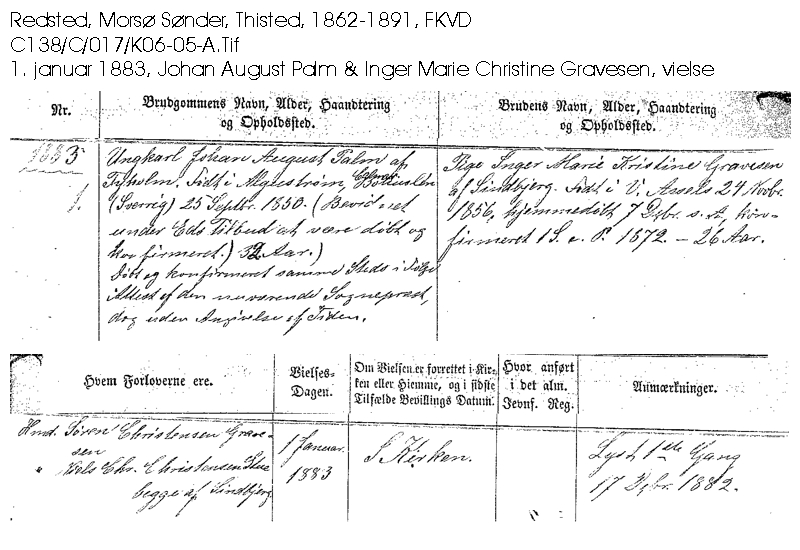 Redsted, Morsø Sønder, Thisted, 1862-1891, FKVD
C138/C/017/K06-05-A.Tif
1. januar 1883, Johan August Palm & Inger Marie Christine Gravesen, vielse
Nr.
Brudgommens Navn, Alder, Haandtering
og Opholdssted.
Brudens Navn, Alder, Haandtering
og Opholdssted.
1883
1.
Ungkarl Johan August Palm af
Tyholm. Født i
(Sverrig) 25 Septbr. 1850. (Bevidnet
under Eds Tilbud at være døbt og
konfirmeret.) 32 Aar.)
Døbt og konfirmeret samme Steds i Følge
Attest af den nuværende Sognepræst,
dog uden Angivelse af Tiden.
Pige Inger Marie Kristine Gravesen
af Sindbjerg. Født i V. Assels 24 Novbr.
1856, hjemmedøbt 7 Dcbr. s. A., kon-
firmeret 1 S. e. P. 1872. - 26 Aar.
Hvem Forloverne ere.
Vielses-
Dagen.
Om Vielsen er forrettet i Kir-
ken eller Hjemme, og i sidste
Tilfælde Bevillings Datum.
Hvor anført
i det alm.
Jevnf. Reg.
Anmærkninger.
Hmd. Sören Christensen Grave-
sen
" Niels Chr. Christensen
begge af Sindbjerg
1 Januar
1883
I Kirken.
Lyst 1ste Gang
17 Dcbr. 1882.